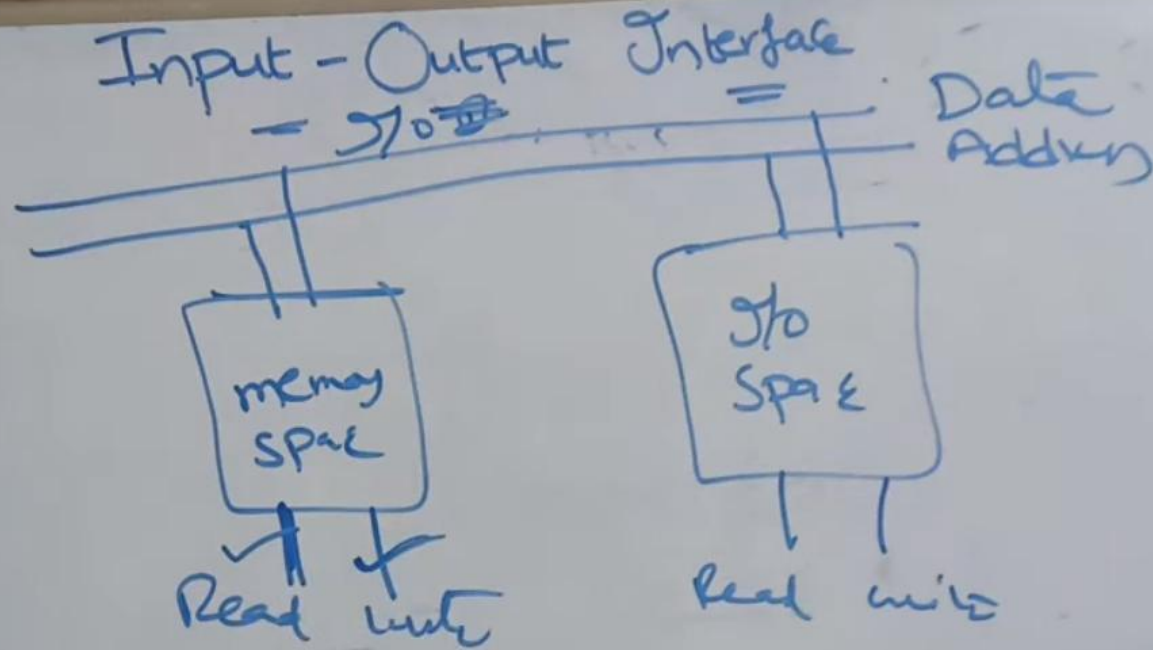 Input - Output Interface
I/O
Data
Address
memory
space
I/O
Space
Read write
Read write